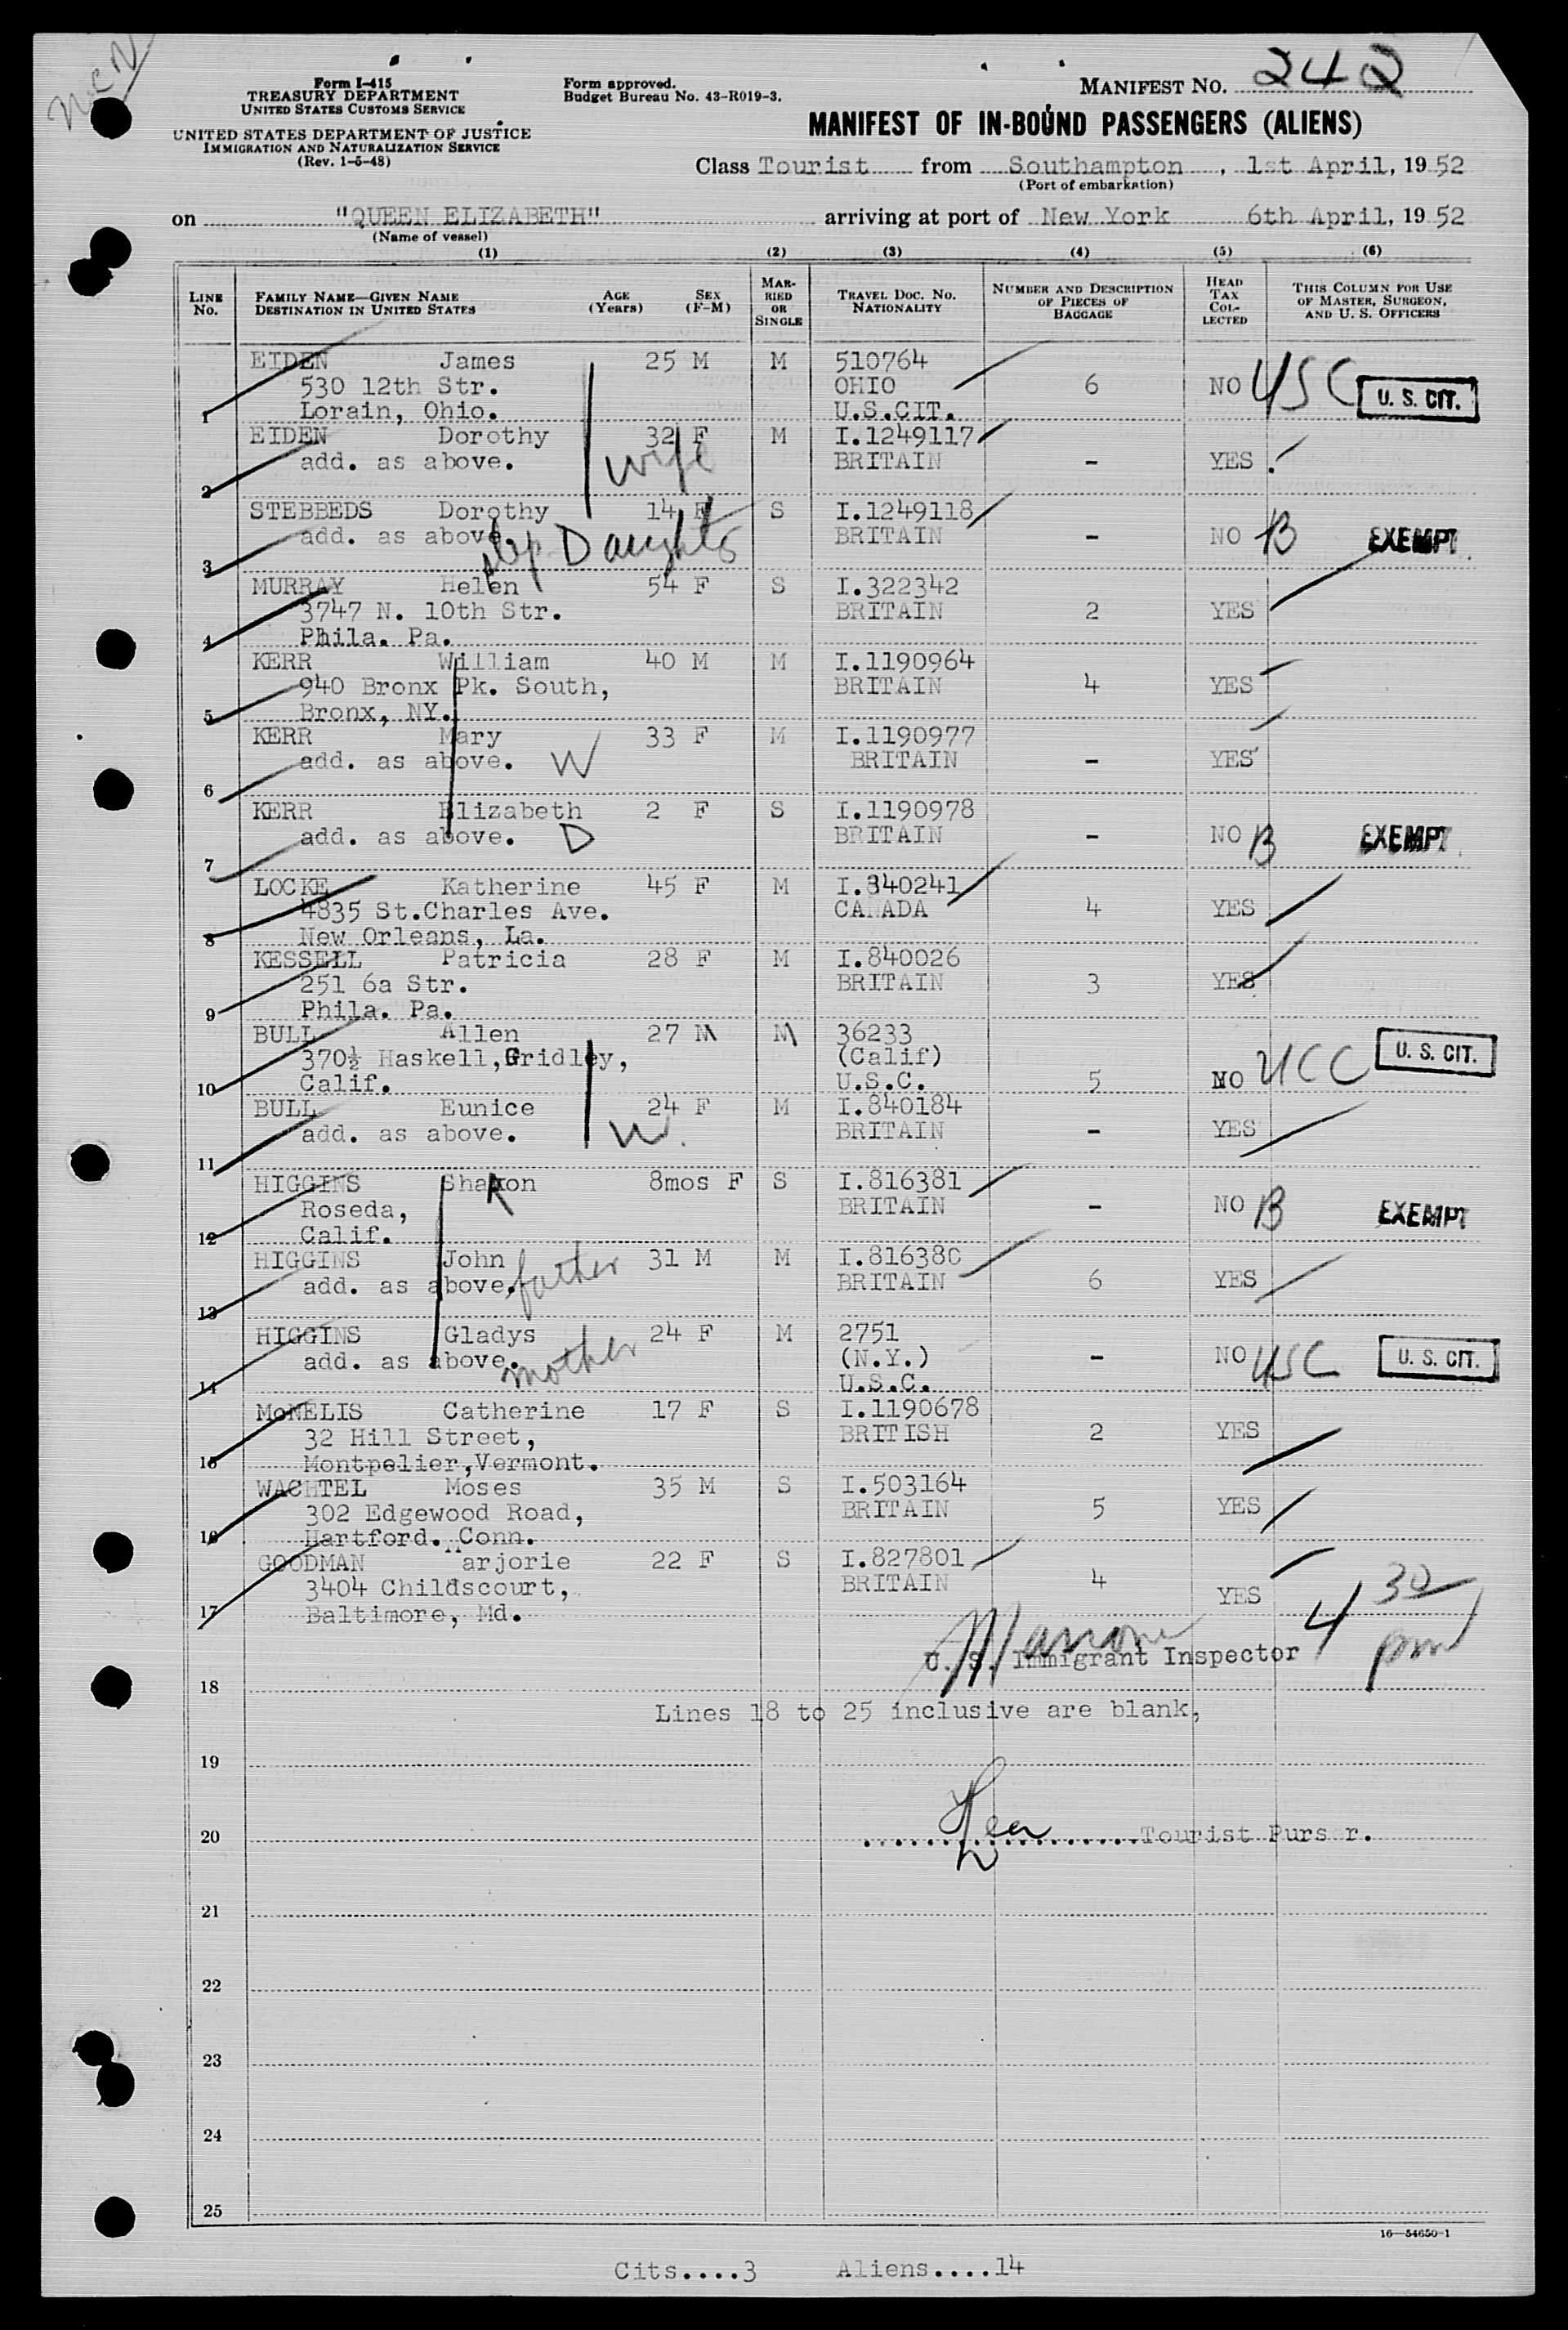 MANIFEST NO. 242
Form I-415
TREASURY DEPARTMENT
UNITED STATES CUSTOMS SERVICE
UNITED STATES DEPARTMENT OF JUSTICE
IMMIGRATION AND NATURALIZATION SERVICE
(Rev. 1-5-48)
Form approved.
Budget Bureau No. 43-R019-3.
MANIFEST OF IN-BOUND PASSENGERS (ALIENS)
Class Tourist from Southampton, 1st April, 1952
(Port of embarkation)
on "QUEEN ELIZABETH" arriving at port of New York 6th April, 1952
(Name of vessel)
(1) (2) (3) (4) (5) (6)
LINE NO. FAMILY NAME—GIVEN NAME DESTINATION IN UNITED STATES AGE (Years) SEX (F-M) MARRIED OR SINGLE TRAVEL DOC. NO. NATIONALITY NUMBER AND DESCRIPTION OF PIECES OF BAGGAGE HEAD TAX COLLECTED THIS COLUMN FOR USE OF MASTER, SURGEON, AND U. S. OFFICERS
EIDEN James 25 M M 510764
530 12th Str. OHIO 6 NO USC U. S. CIT.
1 Lorain, Ohio. U.S.CIT.
EIDEN Dorothy 32 F M I.1249117
add. as above. wife BRITAIN - YES
2
STEBBEDS Dorothy 14 F S I.1249118
add. as above. step Daughter BRITAIN - NO B EXEMPT
3
MURRAY Helen 54 F S I.322342
3747 N. 10th Str. BRITAIN 2 YES
4 Phila. Pa.
KERR William 40 M M I.1190964
940 Bronx Pk. South, BRITAIN 4 YES
5 Bronx, NY.
KERR Mary 33 F M I.1190977
add. as above. W BRITAIN - YES
6
KERR Elizabeth 2 F S I.1190978
add. as above. D BRITAIN - NO B EXEMPT
7
LOCKE Katherine 45 F M I.340241
4835 St.Charles Ave. CANADA 4 YES
8 New Orleans, La.
KESSELL Patricia 28 F M I.840026
251 6a Str. BRITAIN 3 YES
9 Phila. Pa.
BULL Allen 27 M M 36233
370½ Haskell,Gridley, (Calif) U. S. CIT.
10 Calif. U.S.C. 5 NO UCC
BULL Eunice 24 F M I.840184
add. as above. W. BRITAIN - YES
11
HIGGINS Sharon 8mos F S I.816381
Roseda, BRITAIN - NO B EXEMPT
12 Calif.
HIGGINS John 31 M M I.816380
add. as above. father BRITAIN 6 YES
13
HIGGINS Gladys 24 F M 2751
add. as above. mother (N.Y.) - NO USC U. S. CIT.
14 U.S.C.
McNELIS Catherine 17 F S I.1190678
32 Hill Street, BRITISH 2 YES
15 Montpelier,Vermont.
WACHTEL Moses 35 M S I.503164
302 Edgewood Road, BRITAIN 5 YES
16 Hartford. Conn.
GOODMAN Marjorie 22 F S I.827801
3404 Childscourt, BRITAIN 4 YES
17 Baltimore, Md.
4 30 pm
U. S. Immigrant Inspector
18
Lines 18 to 25 inclusive are blank,
19
20 Tourist Purs r.
21
22
23
24
25
16—54650-1
Cits....3 Aliens....14